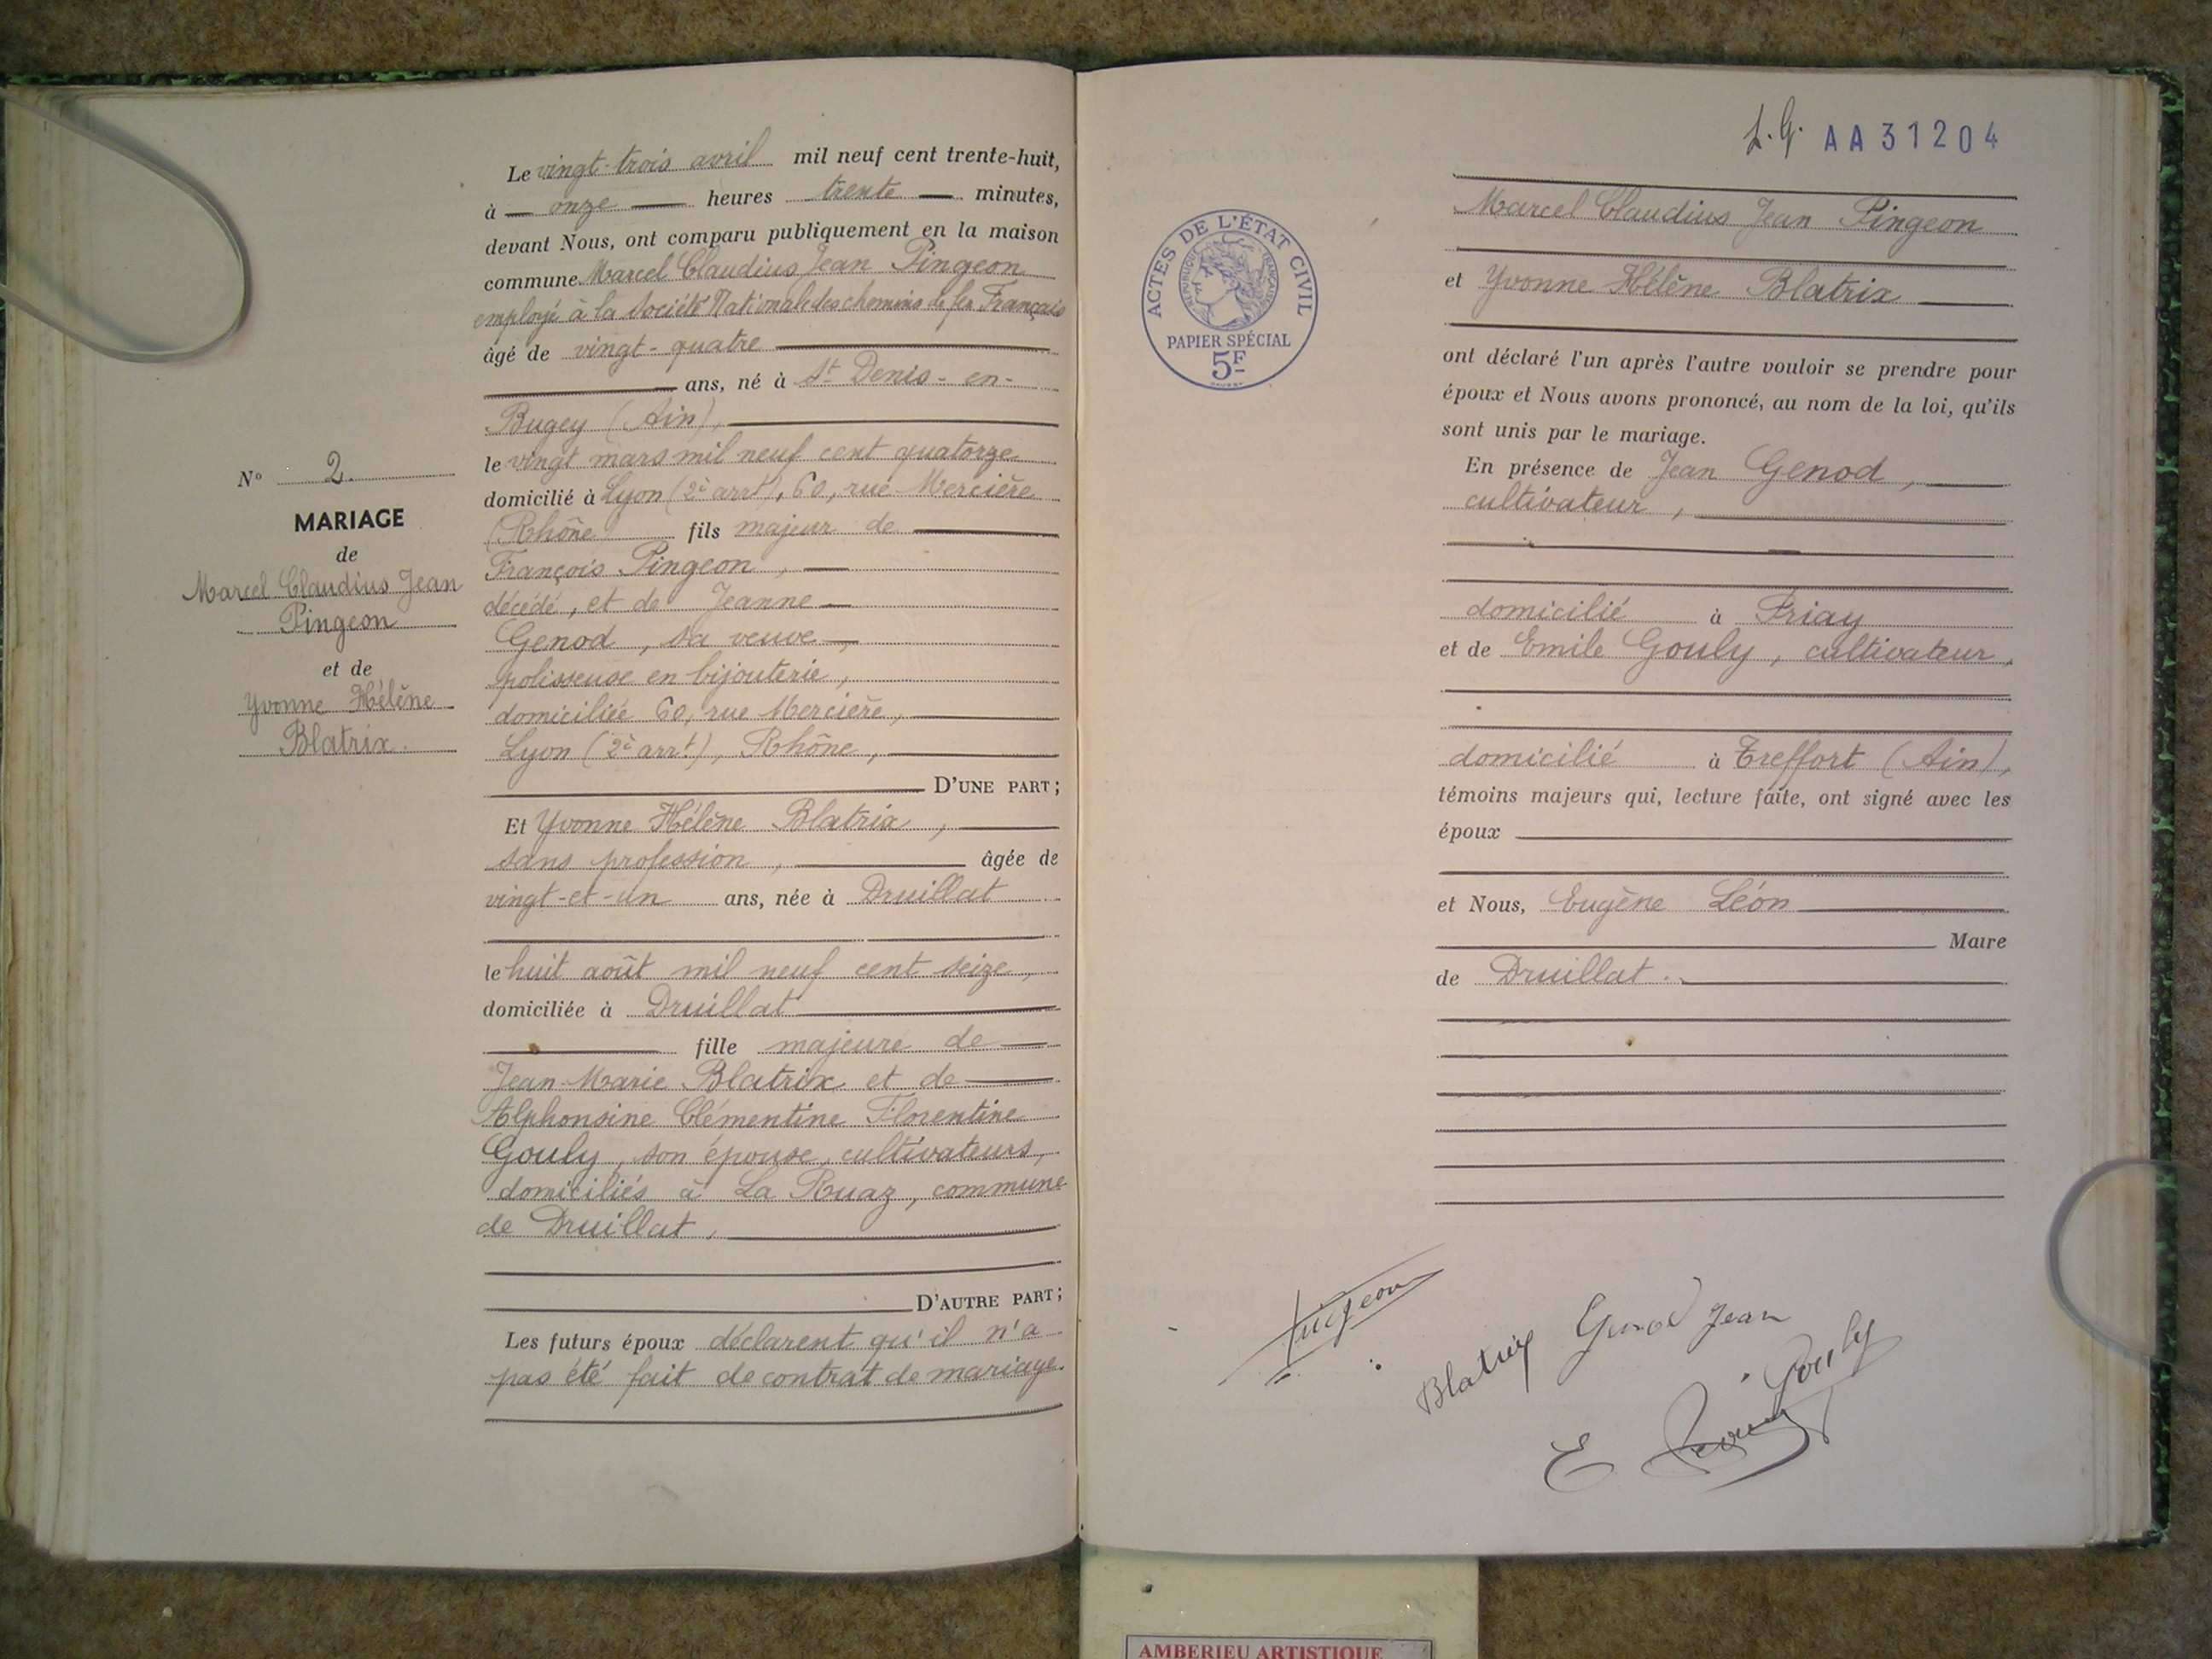 N° 2.
MARIAGE
de
Marcel Claudius Jean
Pingeon
et de
Yvonne Hélène
Blatrix.
Le vingt-trois avril mil neuf cent trente-huit,
à onze heures trente minutes,
devant Nous, ont comparu publiquement en la maison
commune Marcel Claudius Jean Pingeon
employé à la Société Nationale des chemins de fer Français
âgé de vingt-quatre
ans, né à St Denis-en-
Bugey (Ain),
le vingt mars mil neuf cent quatorze
domicilié à Lyon (2è arrt), 60, rue Mercière
(Rhône fils majeur de
François Pingeon,
décédé, et de Jeanne
Genod, sa veuve,
polisseuse en bijouterie,
domiciliée 60, rue Mercière,
Lyon (2è arrt), Rhône,
D'UNE PART;
Et Yvonne Hélène Blatrix,
sans profession, âgée de
vingt-et-un ans, née à Druillat
le huit août mil neuf cent seize,
domiciliée à Druillat
fille majeure de
Jean-Marie Blatrix et de
Alphonsine Clémentine Florentine
Gouly, son épouse, cultivateurs,
domiciliés à La Ruaz, commune
de Druillat,
D'AUTRE PART;
Les futurs époux déclarent qu'il n'a
pas été fait de contrat de mariage.
L.G. AA31204
ACTES DE L'ÉTAT CIVIL
RÉPUBLIQUE FRANÇAISE
PAPIER SPÉCIAL
5F
Marcel Claudius Jean Pingeon
et Yvonne Hélène Blatrix
ont déclaré l'un après l'autre vouloir se prendre pour
époux et Nous avons prononcé, au nom de la loi, qu'ils
sont unis par le mariage.
En présence de Jean Genod,
cultivateur,
domicilié à Priay
et de Emile Gouly, cultivateur,
domicilié à Treffort (Ain),
témoins majeurs qui, lecture faite, ont signé avec les
époux
et Nous, Eugène Léon
Maire
de Druillat.
Pingeon
Blatrix Genod Jean
Gouly
E Léon
AMBERIEU ARTISTIQUE